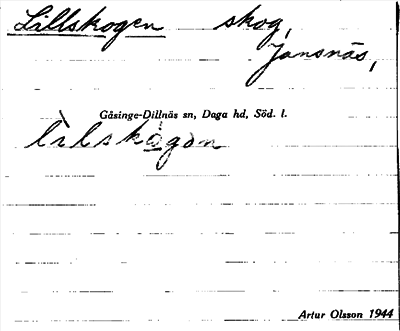 Lillskogen skog,
Jansnäs,
Gåsinge-Dillnäs sn, Daga hd, Söd. l.
Artur Olsson 1944